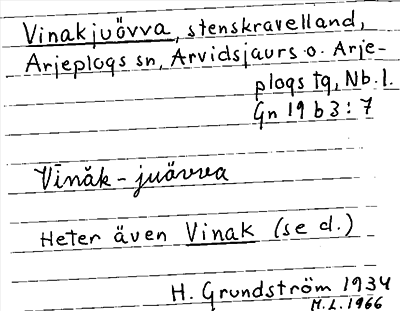 Vinakjuövva, stenskravelland,
Arjeplogs sn, Arvidsjaurs o. Arje-
plogs tg, Nb. l.
Gn 19 b 3 : 7
Vīnăk - juävva
Heter även Vinak (se d.)
H. Grundström 1934
M.L. 1966